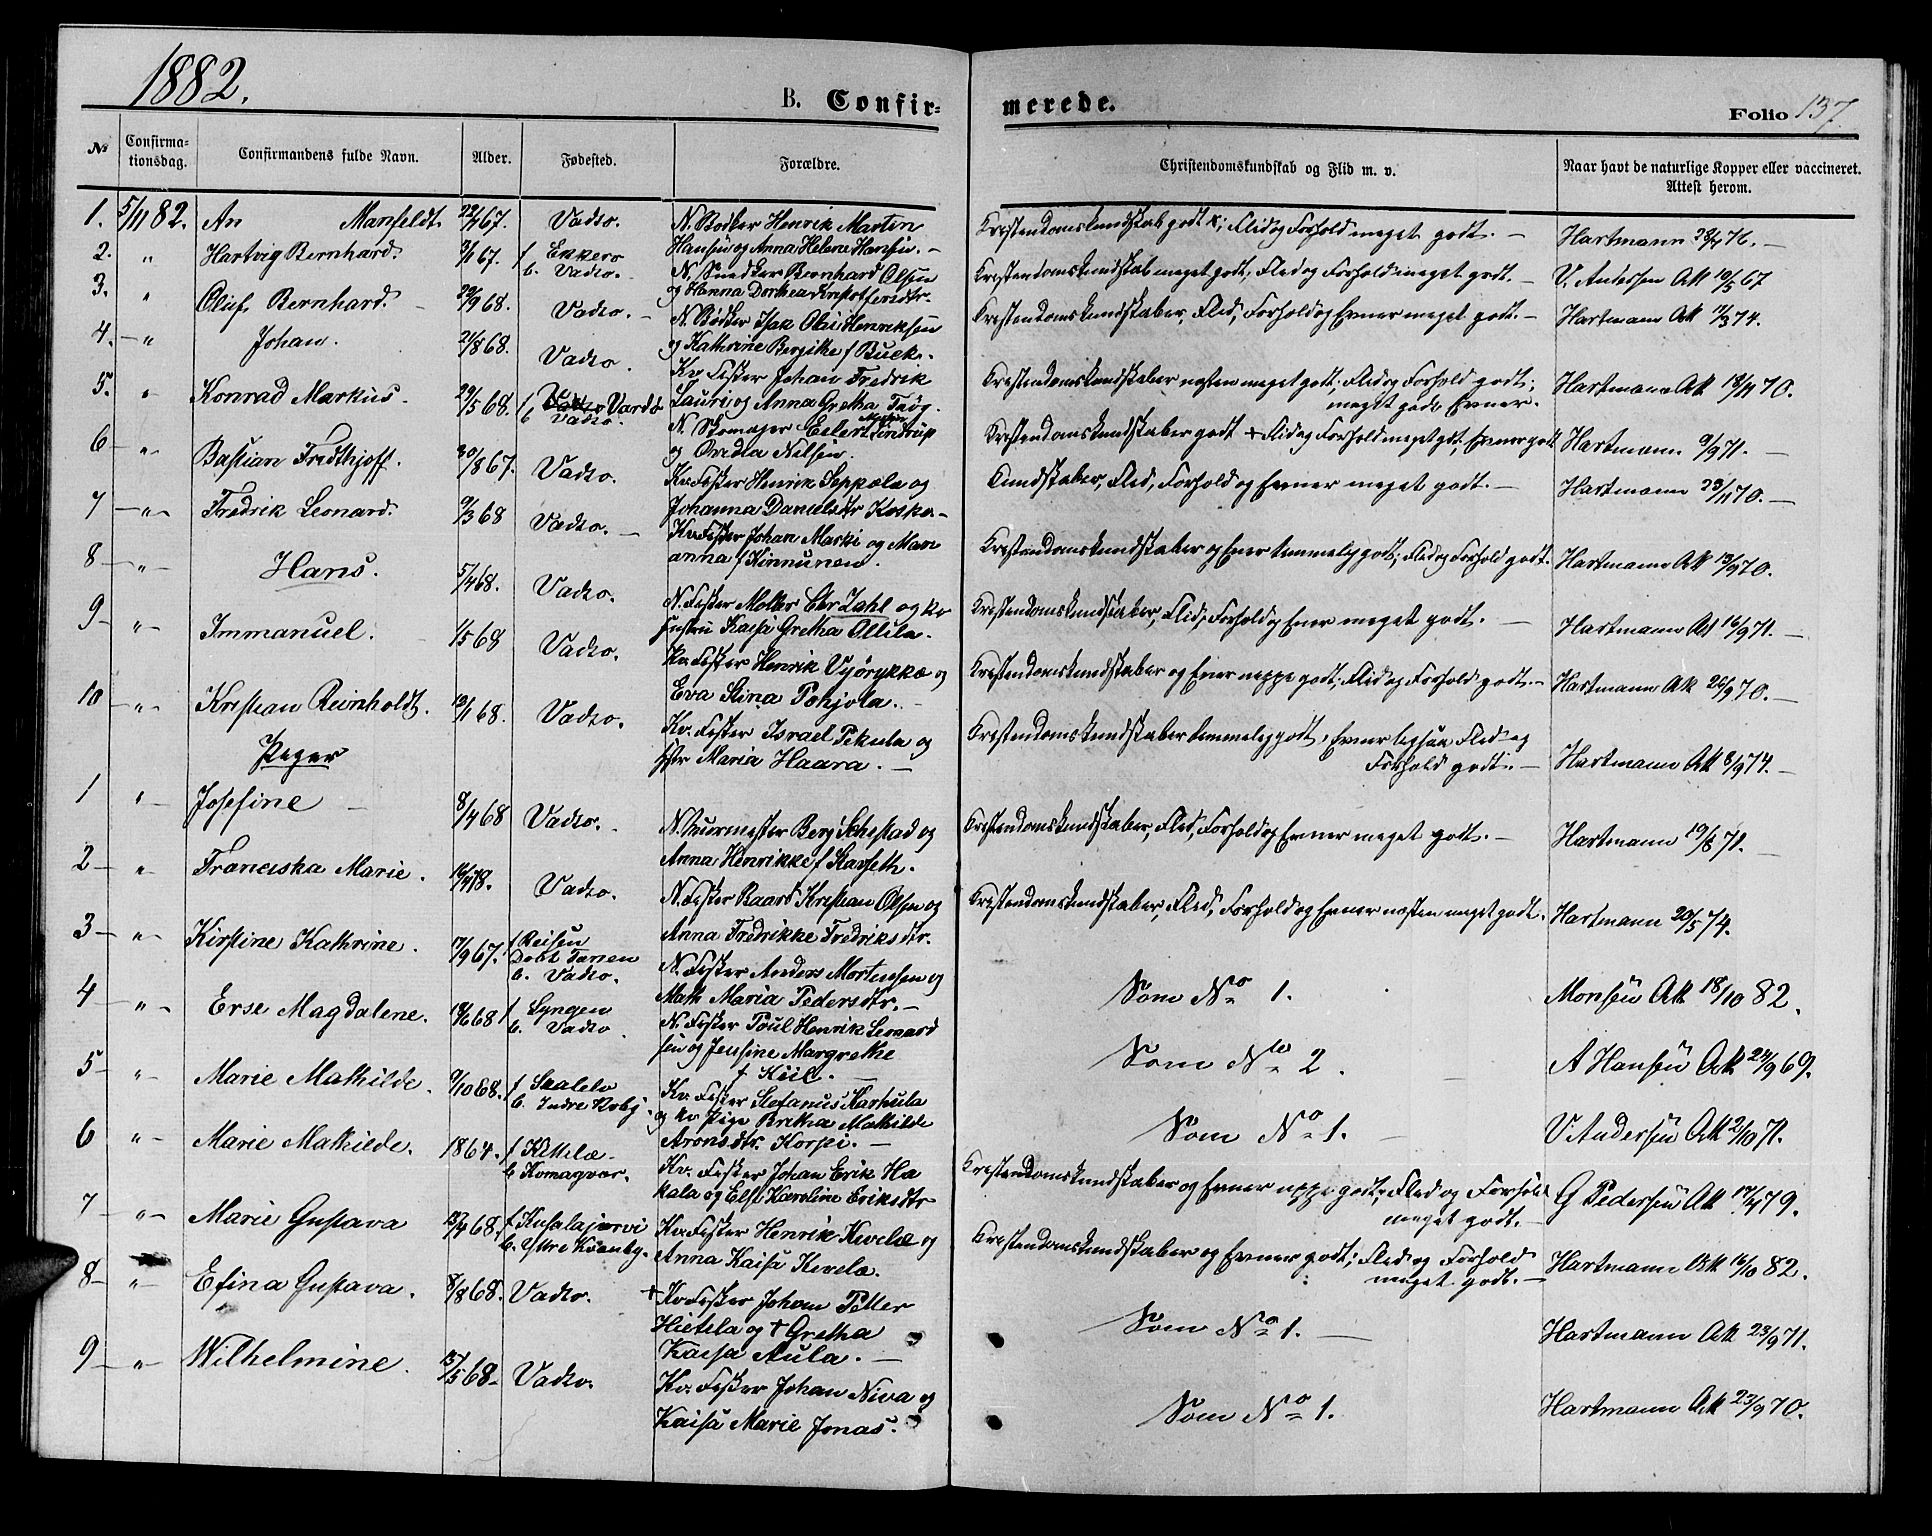 1882.
B. Confirmerede.
Folio 137.
№ Confirmationsdag. Confirmandens fulde Navn. Alder. Fødested. Forældre. Christendomskundskab og Flid m. v. Naar havt de naturlige Kopper eller vaccineret. Attest herom.
1. 5/11 82. An Manfeldt 67. Vadsø. N. Bødker Henrik Martin
Hansen og Anna Helene Hansen. – Kristendomskundskab godt; Flid og Forhold meget godt. – Hartmann 76. –
2. " Hartvig Bernhard. 67. f Ekkerø
b. Vadsø. N. Snedker Bernhard Olsen
og Hanna Dorthea Kristoffersdtr. Kristendomskundskab meget godt, Flid og Forhold meget godt. – V. Andersen Att 10/5 67
3. " Oluf Bernhard. 29/9 68. Vadsø. – N. Bødker Isak Olai Henriksen
og Kathrine Bergithe f Buck. Kristendomskundskaber, Flid, Forhold og Evner meget godt. – Hartmann Att 74.
4. " Johan. 21/8 68. Vadsø. Kv. Fisker Johan Fredrik
Lauri og Anna Gretha Kristendomskundskaber næsten meget godt; Flid og Forhold godt;
meget gode Evner. Hartmann Att 70.
5. " Konrad Markus. 29/5 68. f Vardø
b Vadsø. N. Skomager Eilert Lindrup
og Ovedia Nilsen. Kristendomskundskaber godt Flid og Forhold meget godt, Evner godt Hartmann 9/9 71. –
6 " Bastian Fredthjoff. 30/8 67. Vadsø. Kv. Fisker Henrik Seppola og
Johanna Danielsdtr Koska. – Kundskaber, Flid, Forhold og Evner meget godt. – Hartmann 23/11 70. –
7 " Fredrik Leonard. 9/3 68 Vadsø. – Kv. Fisker Johan Marki og Mari
anna f Kinnunen. Kristendomskundskaber og Evner temmelig godt; Flid og Forhold godt. Hartmann Att 13/9 70.
8 " Hans. 5/4 68. Vadsø. N. Fisker Møller Chr Zahl og kv
Hustru Kaisa Gretha Ollila. Kristendomskundskaber, Flid, Forhold og Evner meget godt. – Hartmann Att 16/9 71. –
9 " Immanuel. 1/5 68 Vadsø. Kv. Fisker Henrik Vyörykkæ og
Eva Stina Pohjola. – Kristendomskundskaber og Evner neppe godt; Flid og Forhold godt. – Hartmann Att 26/9 70. –
10 " Kristian Reinholdt. 68. Vadsø. Kv. Fisker Israel Pekula og
Hstr Maria Haara. – Kristendomskundskaber temmelig godt, Evner ligesaa Flid og
Forhold godt. – Hartmann Att 8/9 74. –
Piger
1 " Josefine – 8/4 68 Vadsø. N. Murmester Berg Sehestad og
Anna Henrikke f Starseth. Kristendomskundskaber, Flid, Forhold og Evner meget godt. – Hartmann 19/8 71. –
2 " Franciska Marie. Vadsø. N. Fisker Baard Kristian Olsen og
Anna Fredrikke Fredriksdtr. Kristendomskundskaber, Flid, Forhold og Evner næsten meget godt. Hartmann 20/5 74.
3 " Kirstine Kathrine. 17/9 67. f Reisen
Døbt Tanen
b. Vadsø. N. Fisker Anders Mortensen og
Math Maria Pedersdtr. – Som No 1. Monsen Att 18/10 82.
4 " Erse Magdalene. 68 f Lyngen
b. Vadsø. N. Fisker Poul Henrik Leonard
sen og Jensine Margrethe
f Kiil. – Som No 2. A Hansen Att 24/9 69.
5 " Marie Mathilde. 9/10 68. f Salelv
b. Indre Kvby. Kv. Fisker Stefanus Karhula
og kv. Pige Britha Mathilde
Aronsdtr. Korpi. – Som No 1. – V Andersen Att 2/10 71.
6 " Marie Mathilde. 1864. f Kittilæ
b Komagvær. Kv. Fisker Johan Erik Ha
kala og Elsi Karoline Eriksdtr Kristendomskundskaber og Evner neppe godt; Flid og Forhold
meget godt. – G Pedersen Att 17/4 79.
7 " Marie Gustava 68. f Kusalajærvi
b. Ytre Kvænby. Kv. Fisker Henrik Kivelæ og
Anna Kaisa Kivelæ. Kristendomskundskaber og Evner godt; Flid og Forhold
meget godt. – Hartmann Att 16/10 82.
8 " Efina Gustava. 8/8 68. Vadsø. † Kv. Fisker Johan Petter
Hietela og † Gretha
Kaisa Aula. – Som No 1. – Hartmann Att 23/9 71.
9 " Wilhelmine. 15/5 68 – Vadsø. Kv. Fisker Johan Niva og
Kaisa Marie Jonas. Som No 1. Hartmann Att 23/9 70.